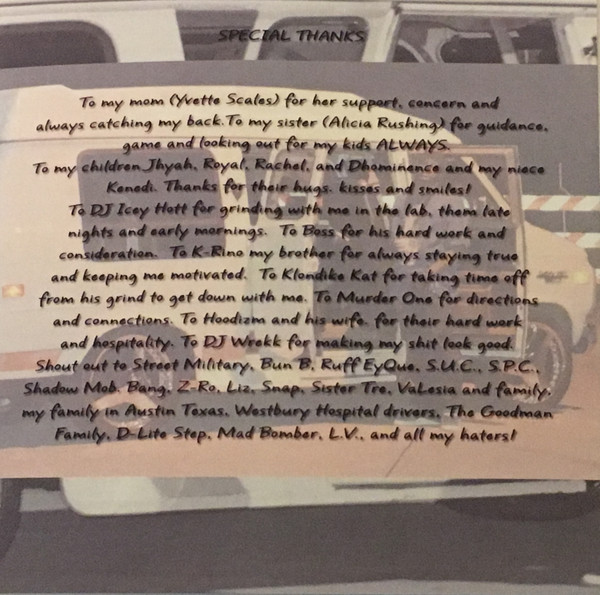 SPECIAL THANKS
To my mom (Yvette Scales) for her support, concern and
always catching my back.To my sister (Alicia Rushing) for guidance,
game and looking out for my kids ALWAYS.
To my children Jhyah, Royal, Rachel, and Dhominence and my niece
Kenedi. Thanks for their hugs, kisses and smiles!
To DJ Icey Hott for grinding with me in the lab, them late
nights and early mornings. To Boss for his hard work and
consideration. To K-Rino my brother for always staying true
and keeping me motivated. To Klondike Kat for taking time off
from his grind to get down with me. To Murder One for directions
and connections. To Hoodizm and his wife, for their hard work
and hospitality. To DJ Wrekk for making my shit look good.
Shout out to Street Military, Bun B, Ruff EyQue, S.U.C., S.P.C.,
Shadow Mob, Bang, Z-Ro, Liz, Snap, Sister Tre, VaLesia and family,
my family in Austin Texas, Westbury Hospital drivers, The Goodman
Family, D-Lite Step, Mad Bomber, L.V., and all my haters!